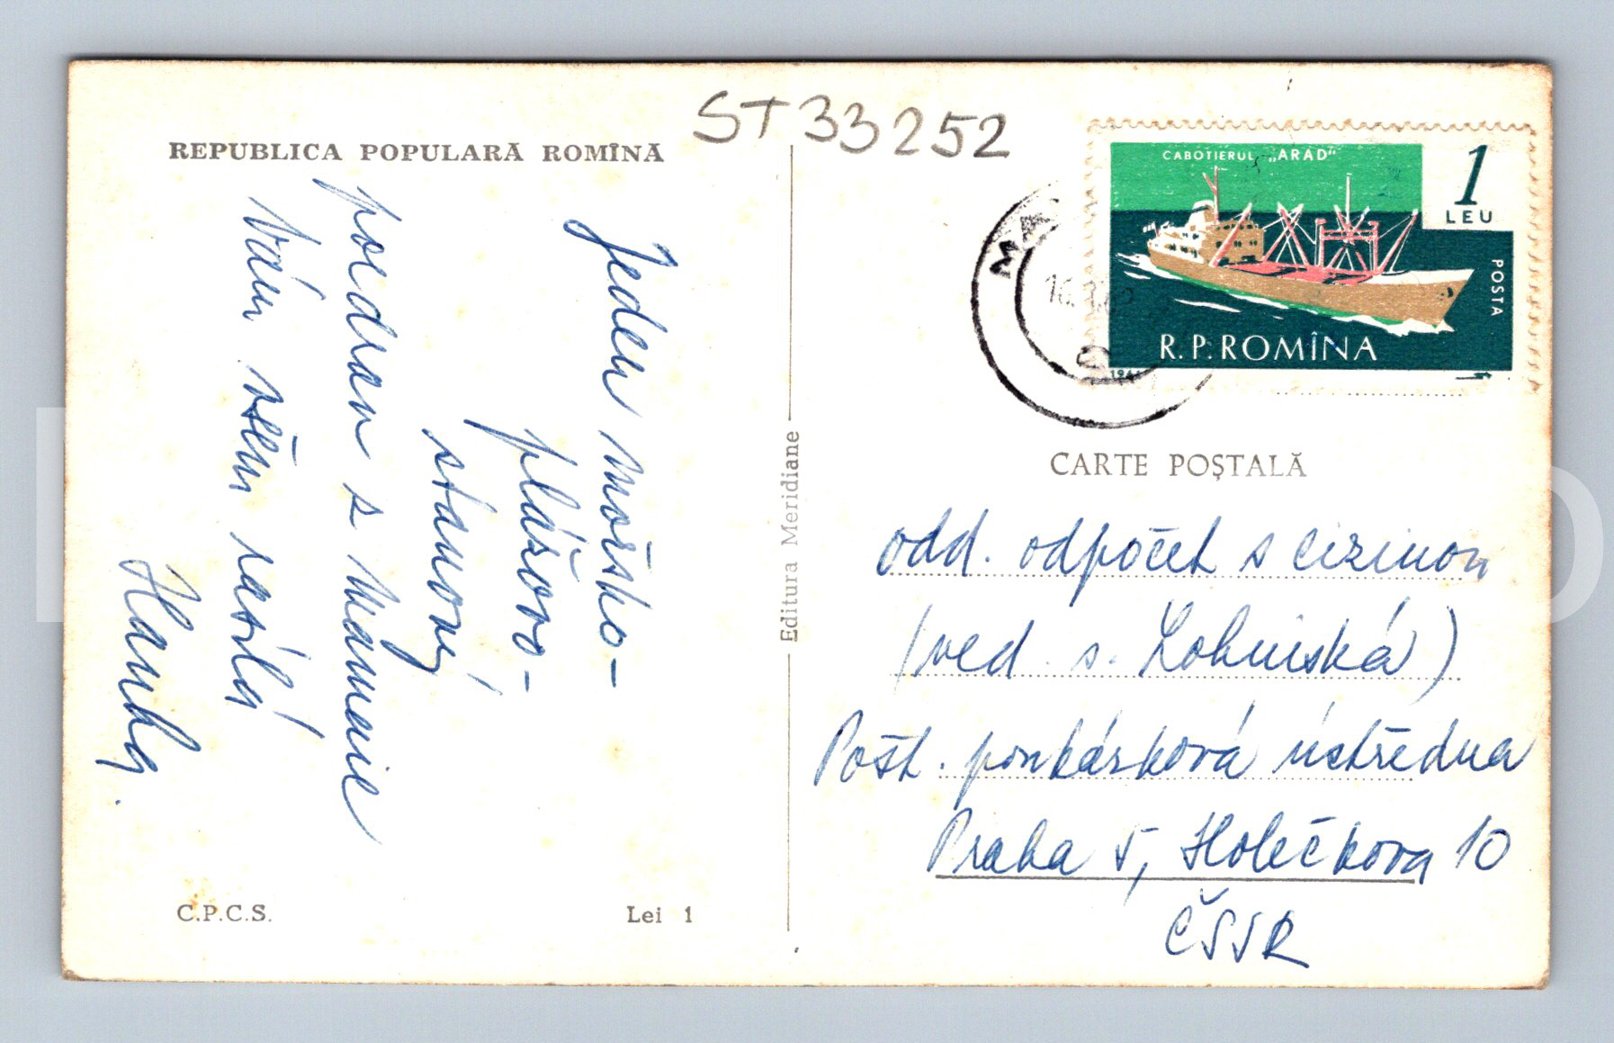 ST 33252
REPUBLICA POPULARĂ ROMÎNĂ
Jeden mořsko-
plážovo-
stanový
pozdrav s Mamaie
Vám všem zasílá
Hanka.
C.P.C.S.
Lei 1
Editura Meridiane
CABOTIERUL „ARAD"
1
LEU
POSTA
R.P.ROMÎNA
CARTE POȘTALĂ
odd. odpočet s cizinou
(ved. s. Lohniská)
Pošt. poukázková ústředna
Praha 5, Holečkova 10
ČSSR